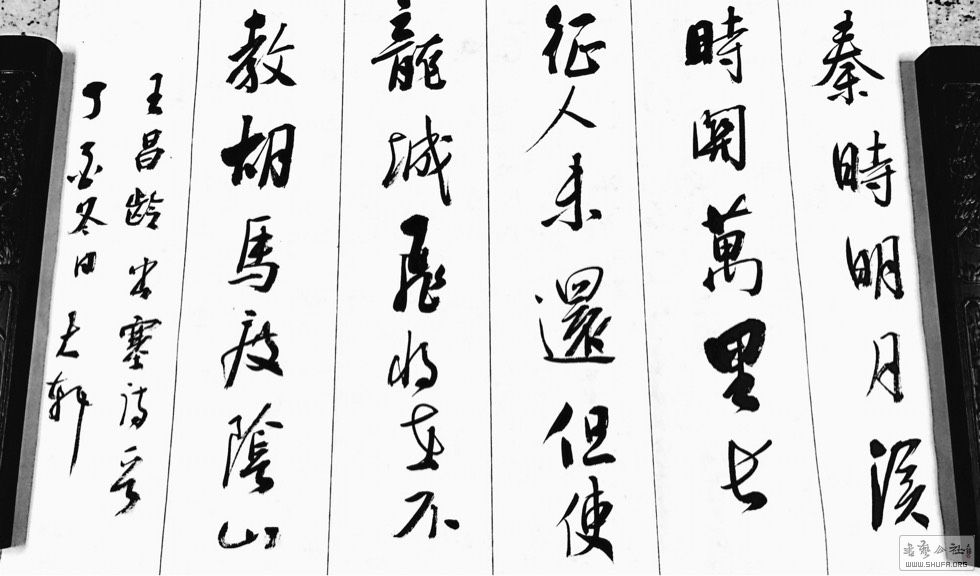 秦時明月漢
時関萬里长
征人未還但使
龍城飛将在不
教胡馬度陰山
王昌齡出塞詩一首
丁酉冬日天軒
書藝公社
WWW.SHUFA.ORG